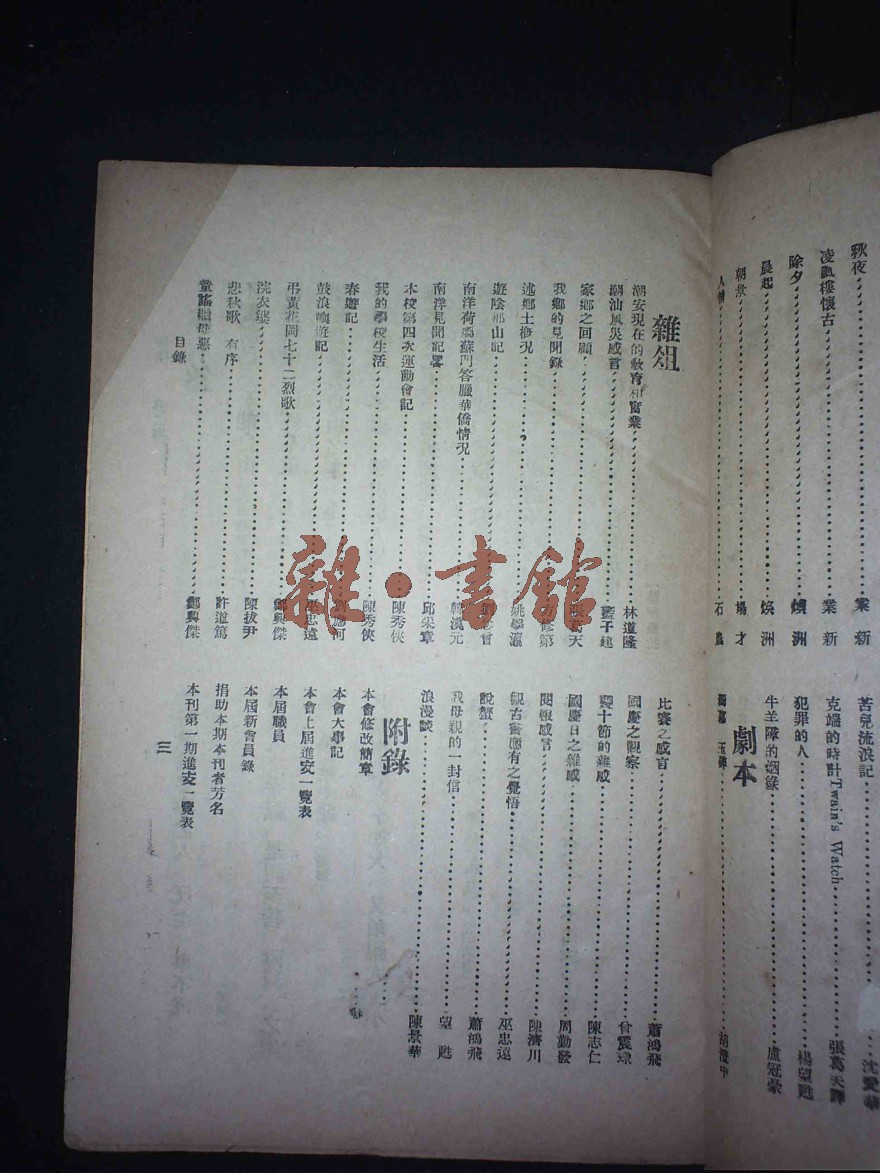 秋夜 業新
凌風樓懷古 業新
除夕 煥洲
晨起 煥洲
朝景 楊才
人情 石
苦兒流浪記 沈愛華
克端的時計Twain's Watch 張萬天譯
犯罪的人 楊望甦
牛羊隊的姻緣 盧冠豪
劇本
胡澄中
雜俎
潮安現在的教育和實業 林道隆
潮汕風災感言 藍子建
家鄉之回顧 天
我鄉的見聞錄 修第
述鄉土概况 姚學瀛
遊陰那山記 曾
南洋荷屬蘇門答臘華僑情况 韓漢元
南洋見聞記畧 邱采章
本校第四次運動會記 陳秀俠
我的學校生活 陳秀俠
春遊記 何
鼓浪嶼遊記 巫忠遠
弔黃花岡七十二烈歌 鄭興傑
浣衣婆 陳拔尹
悲秋歌 有序 許道篤
童謠繼母惡 鄭興傑
比賽之感言 蕭鴻飛
國慶之觀察 曾震球
雙十節的雜感 陳志仁
國慶日之雜感 周勤發
閱報感言 陳濟川
觀古螯應有之覺悟 巫忠遠
說蟹 蕭鴻飛
我母親的一封信 望甦
浪漫談 陳景華
附錄
本會修改簡章
本會大事記
本會上屆進支一覽表
本屆職員
本屆新會員錄
捐助本期本刊者芳名
本刊第一期進支一覽表
目錄
三
雜·書館